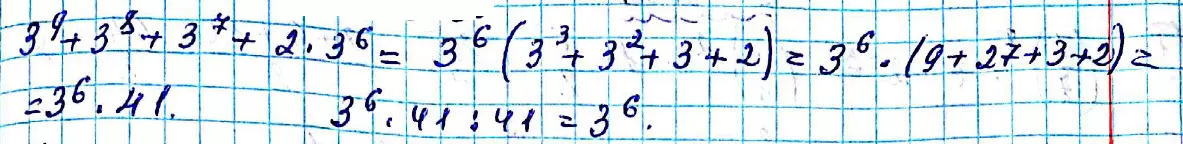 3⁹ + 3⁸ + 3⁷ + 2 · 3⁶ = 3⁶ (3³ + 3² + 3 + 2) = 3⁶ · (9 + 27 + 3 + 2) =
= 3⁶ · 41. 3⁶ · 41 : 41 = 3⁶.